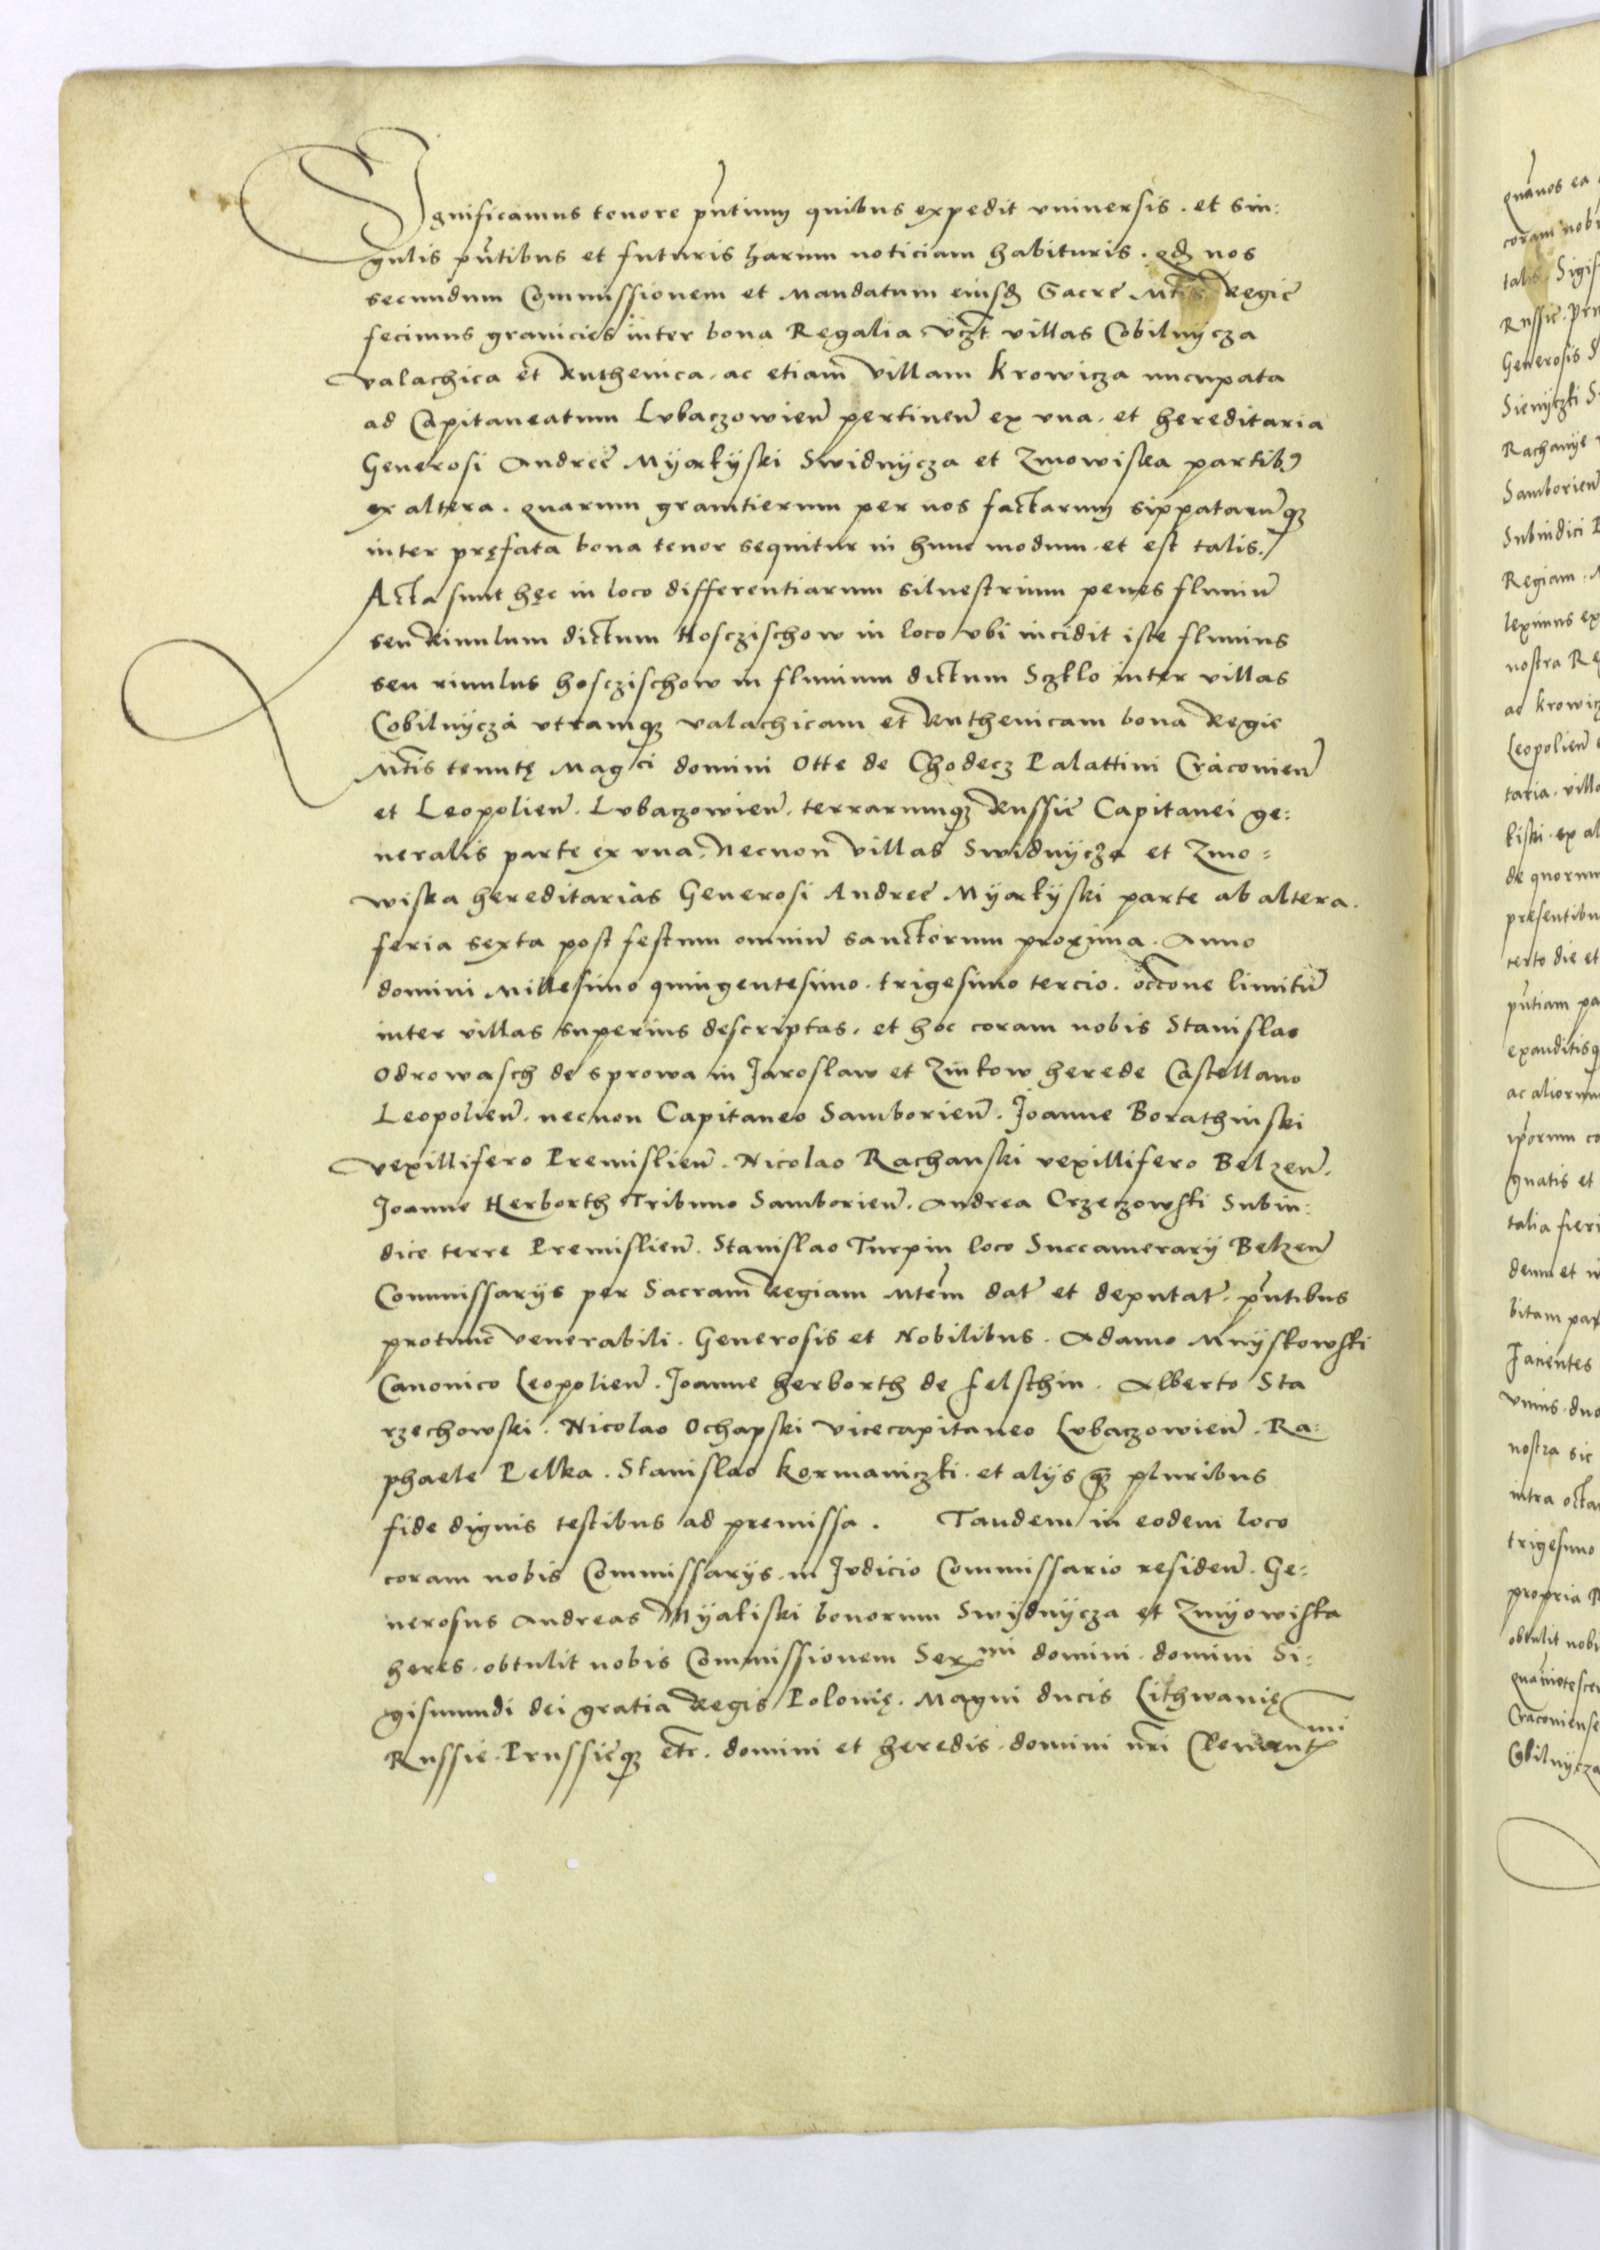 Significamus tenore pñtium quibus expedit vniuersis. et sin:
gulis pñtibus et futuris harum noticiam habituris. qd nos
secundum Commissionem et Mandatum eiusd Sacre Mtis Regie
fecimus granicies inter bona Regalia vczt villas Cobilnycza
valachica et Ruthenica. ac etiam villam Krowicza nncupata
ad Capitaneatum Lvbaczowien pertinen ex vna. et hereditaria
Generosi Andree Myękyski Swidnycza et Zmowiska partibꝰ
ex altera. quarum granitierum per nos factarum sippatarumqꝫ
inter pręfata bona tenor sequitur in hunc modum. et est talis./
Acta sunt hęc in loco differentiarum siluestrium penes fluuiū
seu Riuulum dictum Hosczischow in loco vbi incidit iste fluuius
seu riuulus hosczischow in fluuium dictum Sczklo inter villas
Cobilnycza vtramqꝫ valachicam et Ruthenicam bona Regie
Mtis tenutę Magci domini Otte de Chodecz Palattini Cracovien
et Leopolien. Lvbaczowien. terrarumqꝫ Russie Capitanei ge:
neralis parte ex vna. Necnon villas Swidnycza et Zmo=
wiska hereditarias Generosi Andree Myękyski parte ab altera.
feria sexta post festum omniū sanctorum proxima. Anno
domini Millesimo quingentesimo. trigesimo tercio. occõne limitū
inter villas superius descriptas. et hoc coram nobis Stanislao
Odrowasch de Sprowa in Jaroslaw et Zinkow herede Castellano
Leopolien. necnon Capitaneo Samborien. Joanne Borathinski
vexillifero Premislien. Nicolao Rachanski vexillifero Belzen.
Joanne Herborth Tribuno Samborien. Andrea Orzeczowski Subiu:
dice terre Premislien. Stanislao Turpin loco Succamerarij Belzen
Commissarijs per Sacram Regiam Mtem dat et deputat. pñtibus
protunc venerabili. Generosis et Nobilibus. Adamo Mnyskowski
Canonico Leopolien. Joanne herborth de felschin. Alberto Sta
rzechowski. Nicolao Ochapski vicecapitaneo Lvbaczowien. Ra:
phaele Pelka. Stanislao Kormaniczki. et alijs qꝫ pluribus
fide dignis testibus ad premissa. Tandem in eodem loco
coram nobis Commissarijs. in Jvdicio Commissario residen. Ge:
nerosus Andreas Myękiski bonorum Swydnycza et Zmyowiska
heres. obtulit nobis Commissionem Sermi domini. domini Si:
gismundi dei gratia Regis Polonię. Magni ducis Lithwanię
Russie. Prussieqꝫ etc. domini et heredis. domini nri Clementmi